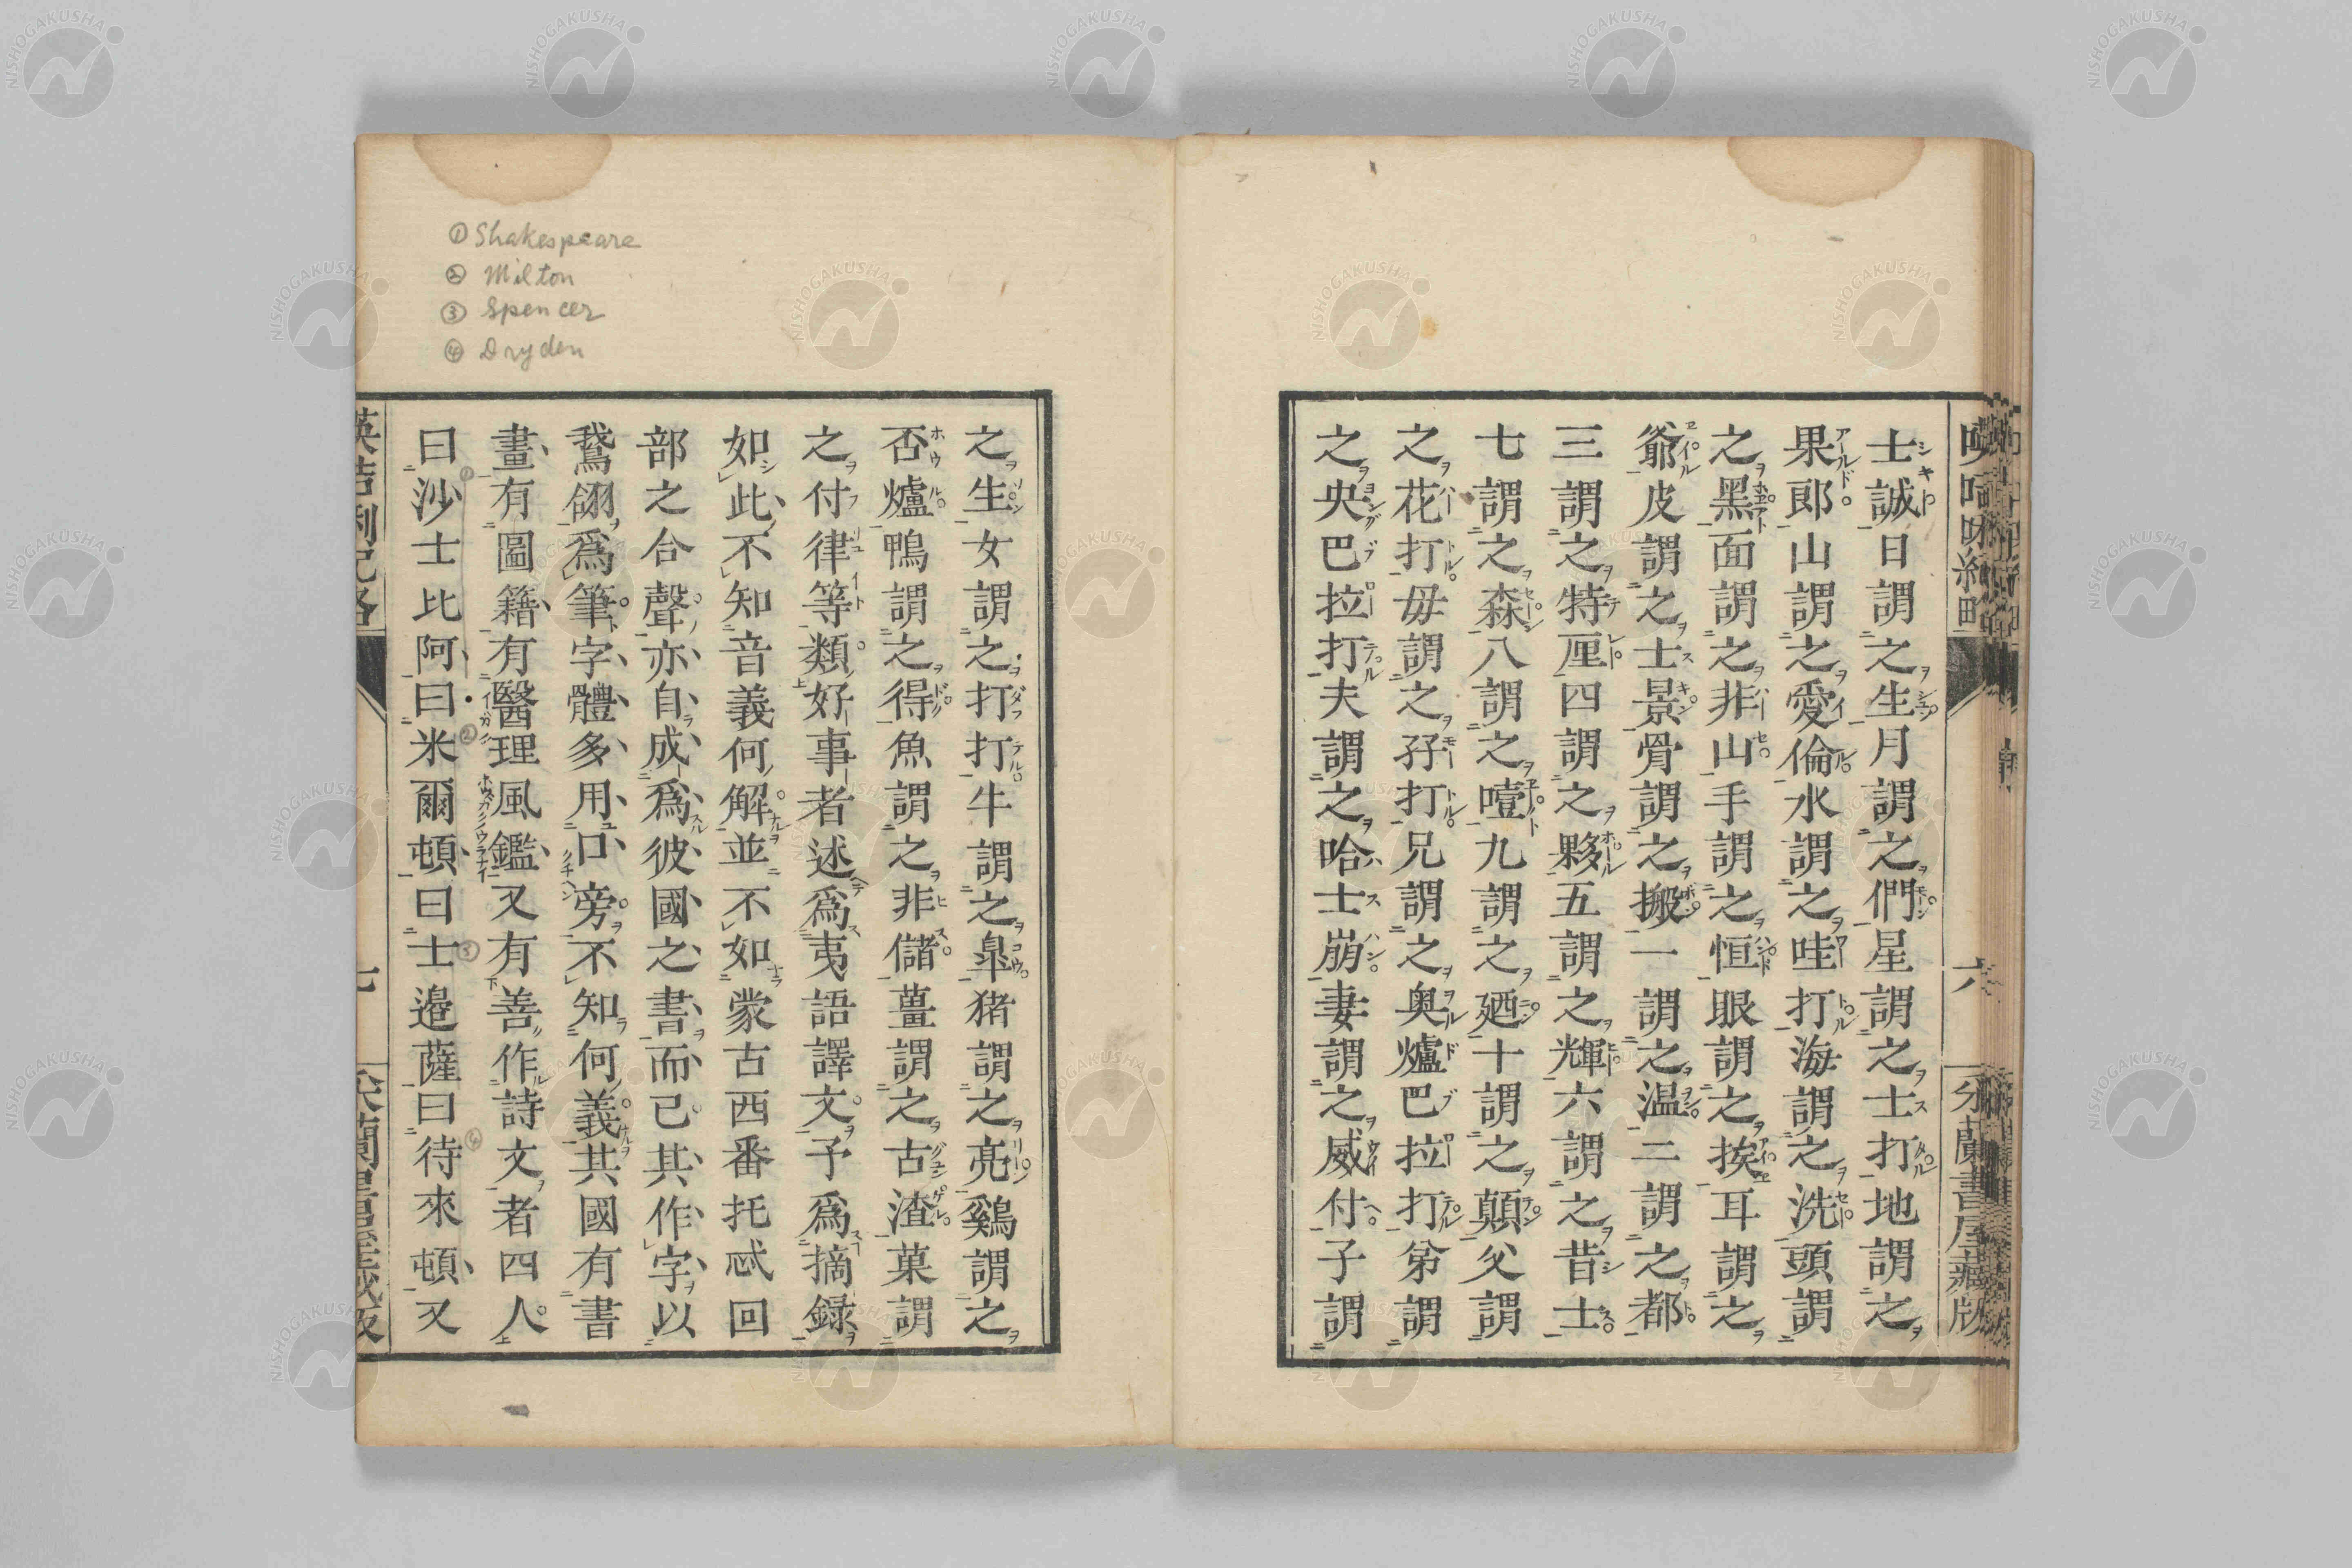 士誠日謂之生月謂之們星謂之士打地謂之
果郎山謂之愛倫水謂之哇打海謂之洗頭謂
之黑面謂之非山手謂之恒眼謂之挨耳謂之
爺皮謂之士景骨謂之搬一謂之温二謂之都
三謂之特厘四謂之夥五謂之輝六謂之昔士
七謂之森八謂之噎九謂之廼十謂之顛父謂
之花打毋謂之孖打兄謂之奥爐巴拉打弟謂
之央巴拉打夫謂之哈士崩妻謂之威付子謂
六
之生女謂之打打牛謂之皐猪謂之亮鷄謂之
否爐鴨謂之得魚謂之非儲薑謂之古渣菓謂
之付律等類好事者述爲夷語譯文予爲摘録
如此不知音義何解並不如蒙古西番托忒回
部之合聲亦自成爲彼國之書而已其作字以
鵞翎爲筆字體多用口旁不知何義其國有書
畫有圖籍有醫理風鑑又有善作詩文者四人
曰沙士比阿曰米爾頓曰士邉薩曰待來頓又
①Shakespeare
② Milton
③ Spencer
④ Dryden
NISHOGAKUSHA